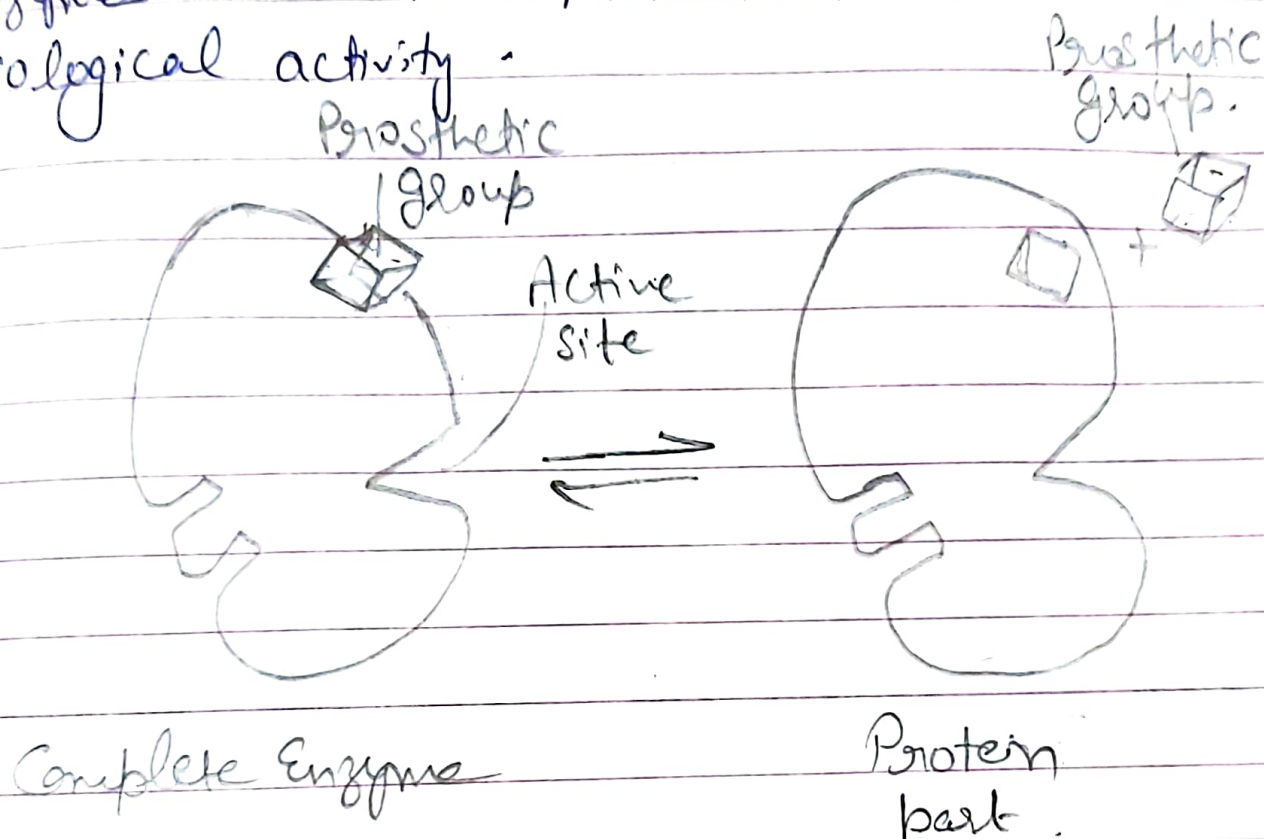 ological activity.
Prosthetic
group.
Prosthetic
group
Active
site
+
Complete Enzyme
Protein
part.